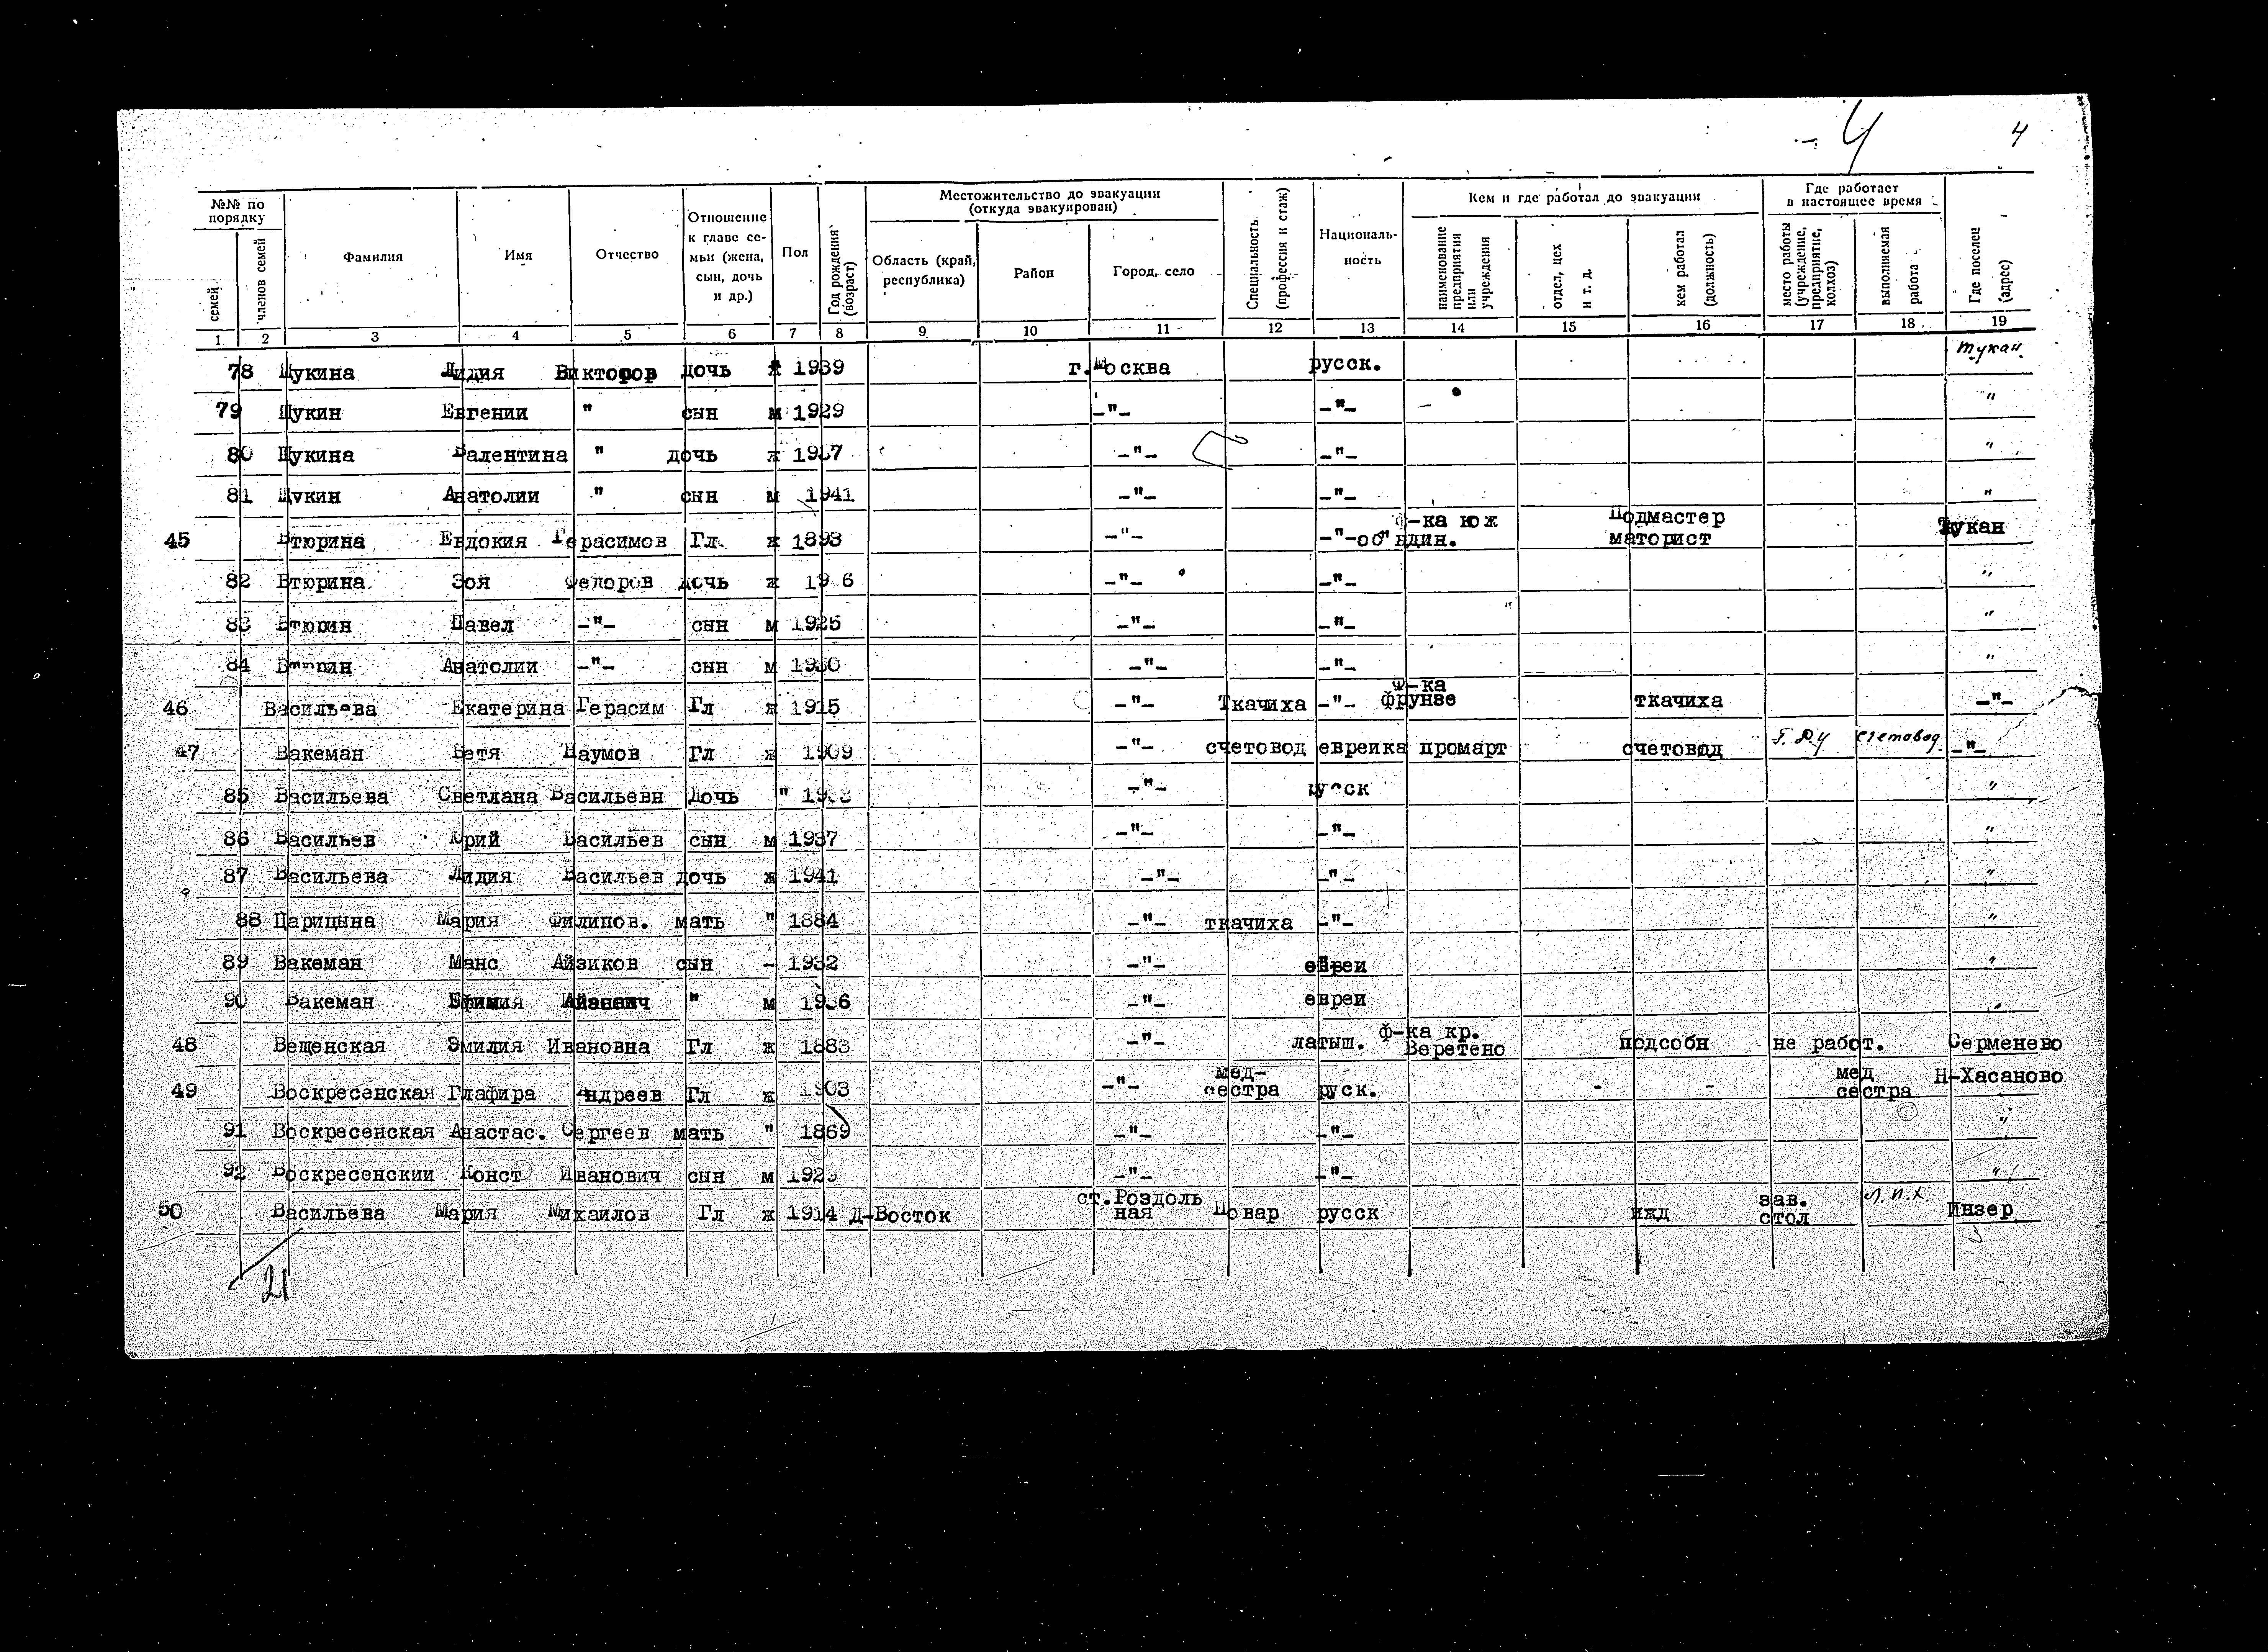 4 4
№№ по порядку
Местожительство до эвакуации
(откуда эвакуирован)
Кем и где работал до эвакуации
Где работает
в настоящее время
семей
членов семей
Фамилия
Имя
Отчество
Отношение к главе семьи (жена, сын, дочь и др.)
Пол
Год рождения (возраст)
Область (край, республика)
Район
Город, село
Специальность (профессия и стаж)
Националь-
ность
наименование предприятия или учреждения
отдел, цех и т. д.
кем работал (должность)
место работы (учреждение, предприятие, колхоз)
выполняемая работа
Где поселен (адрес)
1 2 3 4 5 6 7 8 9 10 11 12 13 14 15 16 17 18 19
78 Щукина Лидия Викторов дочь ж 1939 г.Москва русск. Тукан
79 Щукин Евгении " сын м 1929 -"- -"- "
80 Щукина Валентина " дочь ж 1937 -"- -"- "
81 Щукин Анатолии " сын м 1941 -"- -"- "
45 Втюрина Евдокия Герасимов Гл. ж 1893 -"- -"- ф-ка юж об"ндин. Подмастер маторист Тукан
82 Втюрина Зоя Федоров дочь ж -"- -"- "
83 Втюрин Павел -"- сын м 1925 -"- -"- "
84 Втюрин Анатолии -"- сын м 1930 -"- -"- "
46 Васильева Екатерина Герасим Гл ж 1915 -"- Ткачиха -"- Ф-ка Фрунзе ткачиха -"-
47 Вакеман Бетя Наумов Гл ж 1909 -"- счетовод евреика промарт счетовод счетовод -"-
85 Васильева Светлана Васильевн Дочь " -"- русск "
86 Васильев Юрий Васильев сын м 1937 -"- -"- "
87 Васильева Лидия Васильев дочь ж 1941 -"- -"- "
88 Царицына Мария Филипов. мать " 1884 -"- ткачиха -"- "
89 Вакеман Манс Айзиков сын - 1932 -"- евреи "
90 Вакеман " м 1936 -"- евреи "
48 Вещенская Эмилия Ивановна Гл ж 1883 -"- латыш. Ф-ка кр. Веретено подсобн не работ. Серменево
49 Воскресенская Глафира Андреев Гл ж 1903 -"- мед-сестра руск. - - мед сестра Н-Хасаново
91 Воскресенская Анастас. Сергеев мать " 1869 -"- -"- "
92 Воскресенскии Конст Иванович сын м -"- -"- "
50 Васильева Мария Михаилов Гл ж 1914 Д-Восток ст.Роздоль ная Повар русск ижд зав. стол Л.П.Х. Инзер
21